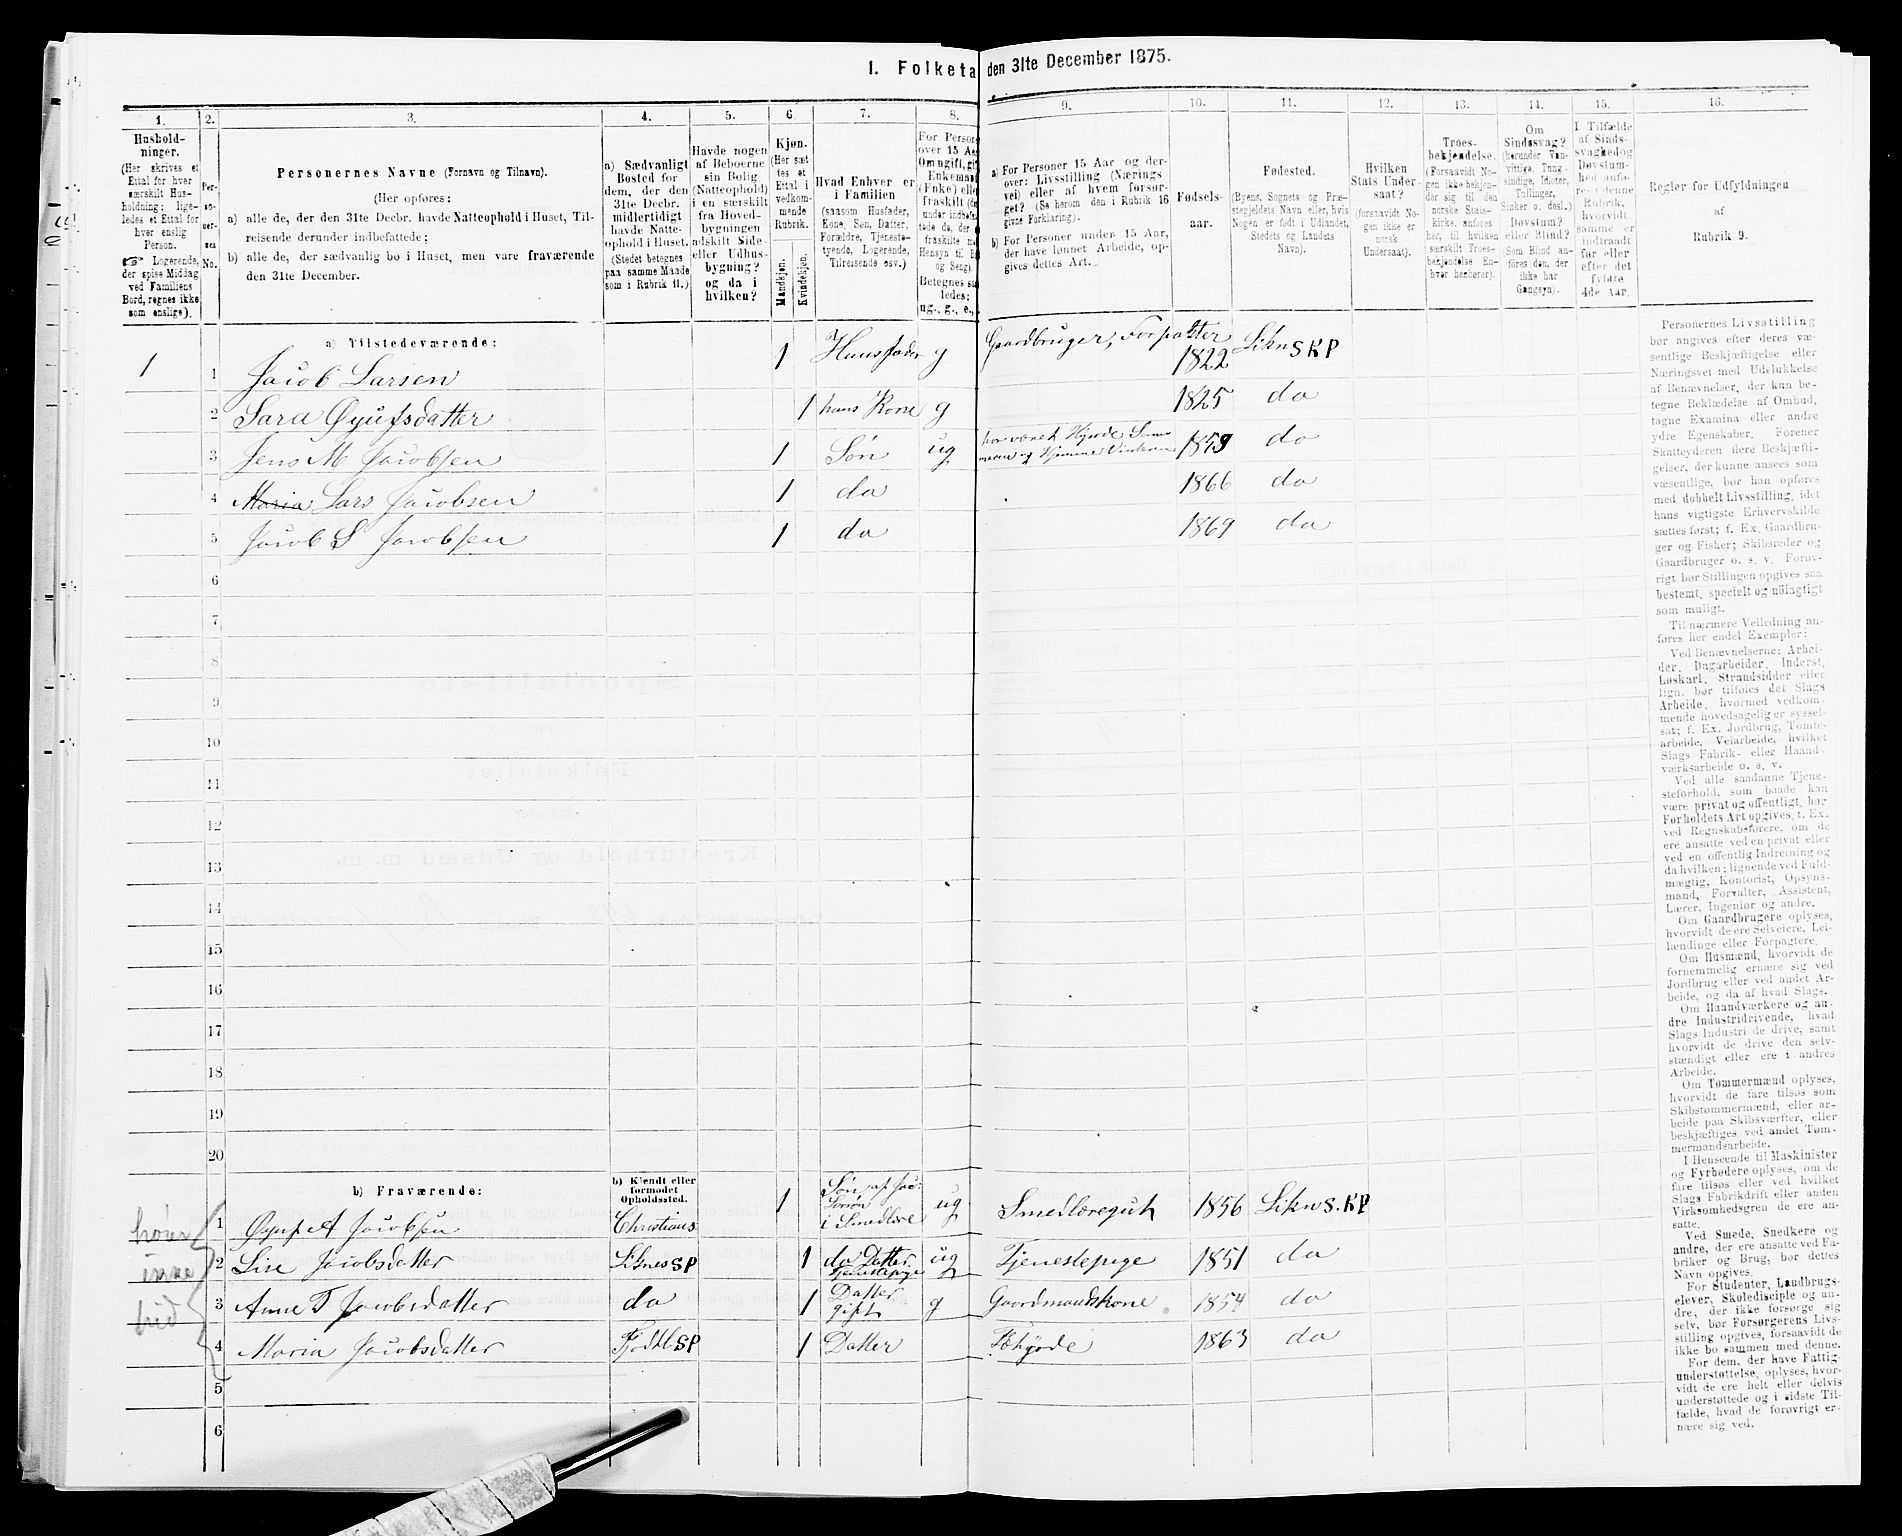 1. Folketa den 31te December 1875.
1. 2. 3. 4. 5. 6. 7. 8. 9. 10. 11. 12. 13. 14. 15. 16.
Hushold-
ninger.
(Her skrives et
Ettal for hver
særskilt Hus-
holdning; lige-
ledes et Ettal for
hver enslig
Person.
☞ Logerende,
der spise Middag
ved Familiens
Bord, regnes ikke
som enslige).
Per-
so-
ner-
nes
No.
Personernes Navne (Fornavn og Tilnavn).
(Her opføres:
a) alle de, der den 31te Decbr. havde Natteophold i Huset, Til-
reisende derunder indbefattede;
b) alle de, der sædvanlig bo i Huset, men vare fraværende
den 31te December.
a) Sædvanligt
Bosted for
dem, der den
31te Decbr.
midlertidigt
havde Natte-
ophold i Huset.
(Stedet betegnes
paa samme Maade
som i Rubrik 11.)
Havde nogen
af Beboerne
sin Bolig
(Natteophold)
i en særskilt
fra Hoved-
bygningen
adskilt Side-
eller Udhus-
bygning?
og da i
hvilken?
Kjøn.
(Her sæt
tes et
Ettal i
vedkom-
mende
Rubrik.
Mandkjøn.
Kvindekjøn.
Hvad Enhver er
i Familien
(saasom Husfader,
Kone, Søn, Datter,
Forældre, Tjeneste-
tyende, Logerende,
Tilreisende osv.)
For Person
over 15 Aa
Om ugift, gi
Enkeman
(Enke) elle
fraskilt (de
under indbefat-
tede de, der
fraskilte m
Hensyn til B
og Seng).
Betegnes saa
ledes:
ug., g., e.,
a) For Personer 15 Aar og der-
over: Livsstilling (Nærings
vei) eller af hvem forsør-
get? (Se herom den i Rubrik 16
givne Forklaring).
b) For Personer under 15 Aar,
der have lønnet Arbeide, op-
gives dettes Art.
Fødsels-
aar.
Fødested.
(Byens, Sognets og Præ-
stegjeldets Navn eller, hvis
Nogen er født i Udlandet,
Stedets og Landets
Navn).
Hvilken
Stats Under-
saat?
(forsaavidt No-
gen ikke er
norsk
Undersaat).
Troes-
bekjendelse.
(Forsaavidt No-
gen ikke bekjen-
der sig til den
norske Stats-
kirke, anføres
her, til hvilken
særskilt Troes-
bekjendelse En-
hver henhører).
Om
Sindssvag?
(herunder Van-
vittige, Tung-
sindige, Idioter,
Tullinger,
Sinker o. desl.)
Døvstum?
eller Blind?
(Som Blind an-
føres den, der
ikke har
Gangsyn).
I Tilfælde
af Sinds-
svaghed og
Døvstum-
hed anfø-
res i denne
Rubrik,
hvorvidt
samme er
indtraadt
før eller
efter det
fyldte
4de Aar.
Regler for Udfyldningen
af
Rubrik 9.
a) Tilstedeværende:
1 1 Jacob Larsen 1 Huusfader g Gaardbruger, Forpagter 1822 Likn S K P
2 Sara Øyufsdatter 1 hans Kone g 1825 do
3 Jens M Jacobsen 1 Søn ug har været Hyrde Som meren og Hjemme Vinteren 1859 do
4 Maria Lars Jacobsen 1 do 1866 do
5 Jacob S Jacobsen 1 do 1869 do
6
7
8
9
10
11
12
13
14
15
16
17
18
19
20
b) Fraværende:
b) Kjendt eller
formodet
Opholdssted.
1 Jacobsen Christians 1 Søn i Smedlære ug Smedlæregut 1856 Likn S. KP
2 Line Jacobsdatter Liknes SP 1 do Datter Tjenestepige ug Tjenestepige 1851 do
3 Anne T Jacobsdatter do 1 Datter gift g Gaardmandskone 1854 do
4 Maria Jacobsdatter Fjodtl SP 1 Datter Fæhyrde 1863 do
5
6
hører
ikke
hid
Personernes Livsstilling
bør angives efter deres væ-
sentlige Beskjæftigelse eller
Næringsvei med Udelukkelse
af Benævnelser, der kun be-
tegne Beklædelse af Ombud,
tagne Examina eller andre
ydre Egenskaber. Forener
Skatteyderen flere Beskjæfti-
gelser, der kunne ansees som
væsentlige, bør han opføres
med dobbelt Livsstilling, idet
hans vigtigste Erhvervskilde
sættes først; f. Ex. Gaardbru-
ger og Fisker; Skibsreder og
Gaardbruger o. s. v. Forøv-
rigt bør Stillingen opgives saa
bestemt, specielt og nöiagtigt
som muligt.
Til nærmere Veiledning an-
føres her endel Exempler:
Ved Benævnelserne: Arbei-
der, Dagarbeider, Inderst,
Løskarl, Strandsidder eller
lign. bør tilføies det Slags
Arbeide, hvormed vedkom-
mende hovedsagelig er syssel-
sat; f. Ex. Jordbrug, Tomte-
arbeide, Veiarbeide, hvilket
Slags Fabrik- eller Haand-
værksarbeide o. s. v.
Ved alle saadanne Tjene-
steforhold, som baade kan
være privat og offentligt, bør
Forholdets Art opgives, f. Ex.
ved Regnskabsførere, om de
ere ansatte ved en privat eller
ved en offentlig Indretning og
da hvilken; lignende ved Fuld-
mægtig, Kontorist, Opsyns-
mand, Forvalter, Assistent,
Lærer, Ingeniør og andre.
Om Gaardbrugere oplyses,
hvorvidt de ere Selveiere, Lei-
lændinge eller Forpagtere.
Om Husmænd, hvorvidt de
fornemmelig ernære sig ved
Jordbrug eller ved andet Ar-
beide, og da af hvad Slags.
Om Haandværkere og an-
dre Industridrivende, hvad
Slags Industri de drive, samt
hvorvidt de drive den selv-
stændigt eller ere i andres
Arbeide.
Om Tømmermænd oplyses,
hvorvidt de fare tilsøs som
Skibstømmermænd, eller ar-
beide paa Skibsværfter, eller
beskjæftiges ved andet Tøm-
mermandsarbeide.
I Henseende til Maskinister
og Fyrbødere oplyses, om de
fare tilsøs eller ved hvilket
Slags Fabrikdrift eller anden
Virksomhedsgren de ere an-
satte.
Ved Smede, Snedkere og
andre, der ere ansatte ved Fa-
briker og Brug, bør dettes
Navn opgives.
For Studenter, Landbrugs-
elever, Skoledisciple og an-
dre, der ikke forsørge sig
selv, bør Forsørgerens Livs-
stilling opgives, forsaavidt de
ikke bo sammen med denne.
For dem, der have Fattig-
understøttelse, oplyses, hvor-
vidt de ere helt eller delvis
understøttede og i sidste Til-
fælde, hvad de forøvrigt er-
nære sig ved.